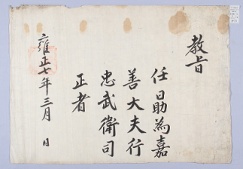 教旨
任日助為嘉
善大夫行
忠武衛司
正者
雍正七年三月 日